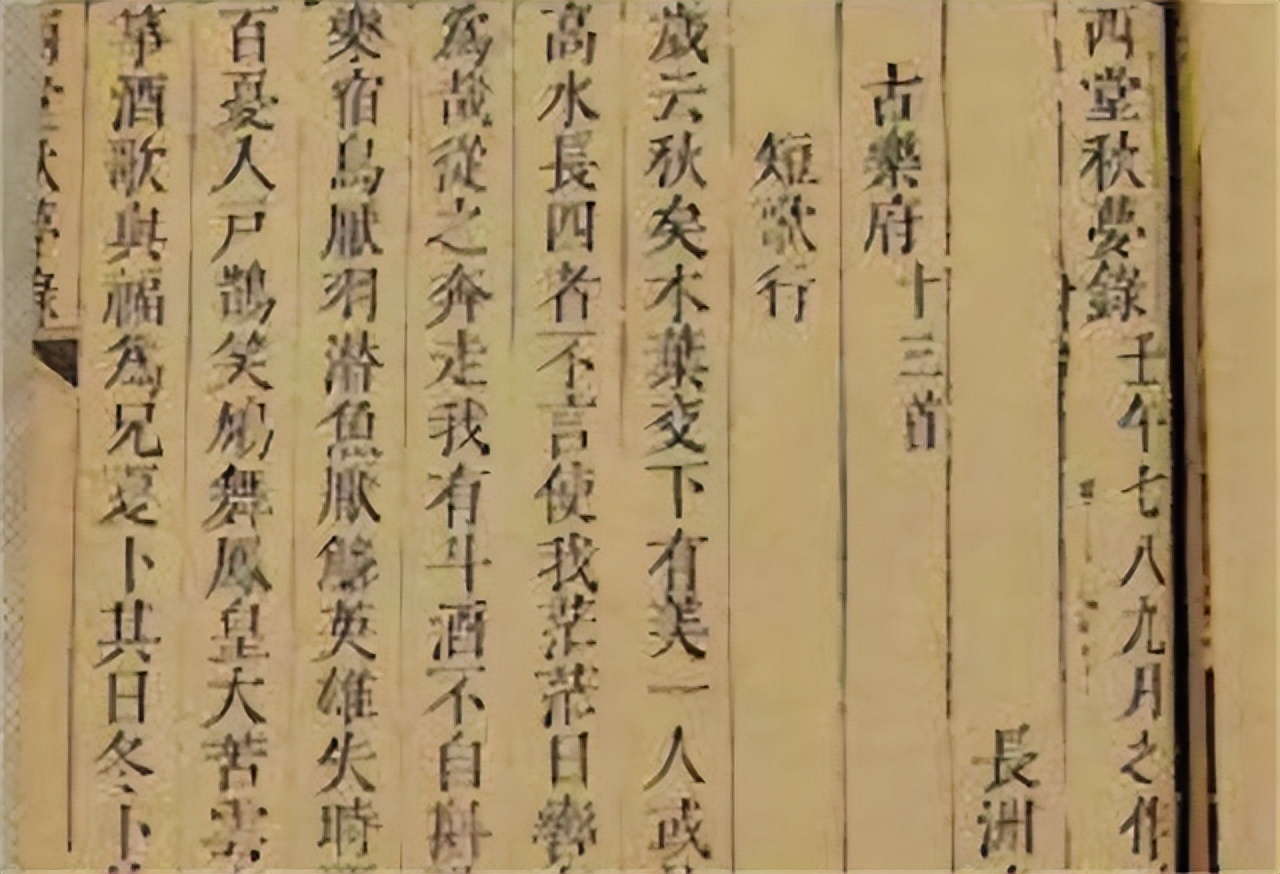 西堂秋夢錄 壬午七八九月之作
長洲
古樂府 十三首
短歌行
歲云秋矣木葉交下有美一人或
高水長四者不言使我茫茫日
為哉從之奔走我有斗酒不自斟
宿鳥厭羽潛魚厭 英雄失時
百憂人戸鵲笑鳩舞鳳皇大苦
酒歌與福為兄憂卜其日冬卜